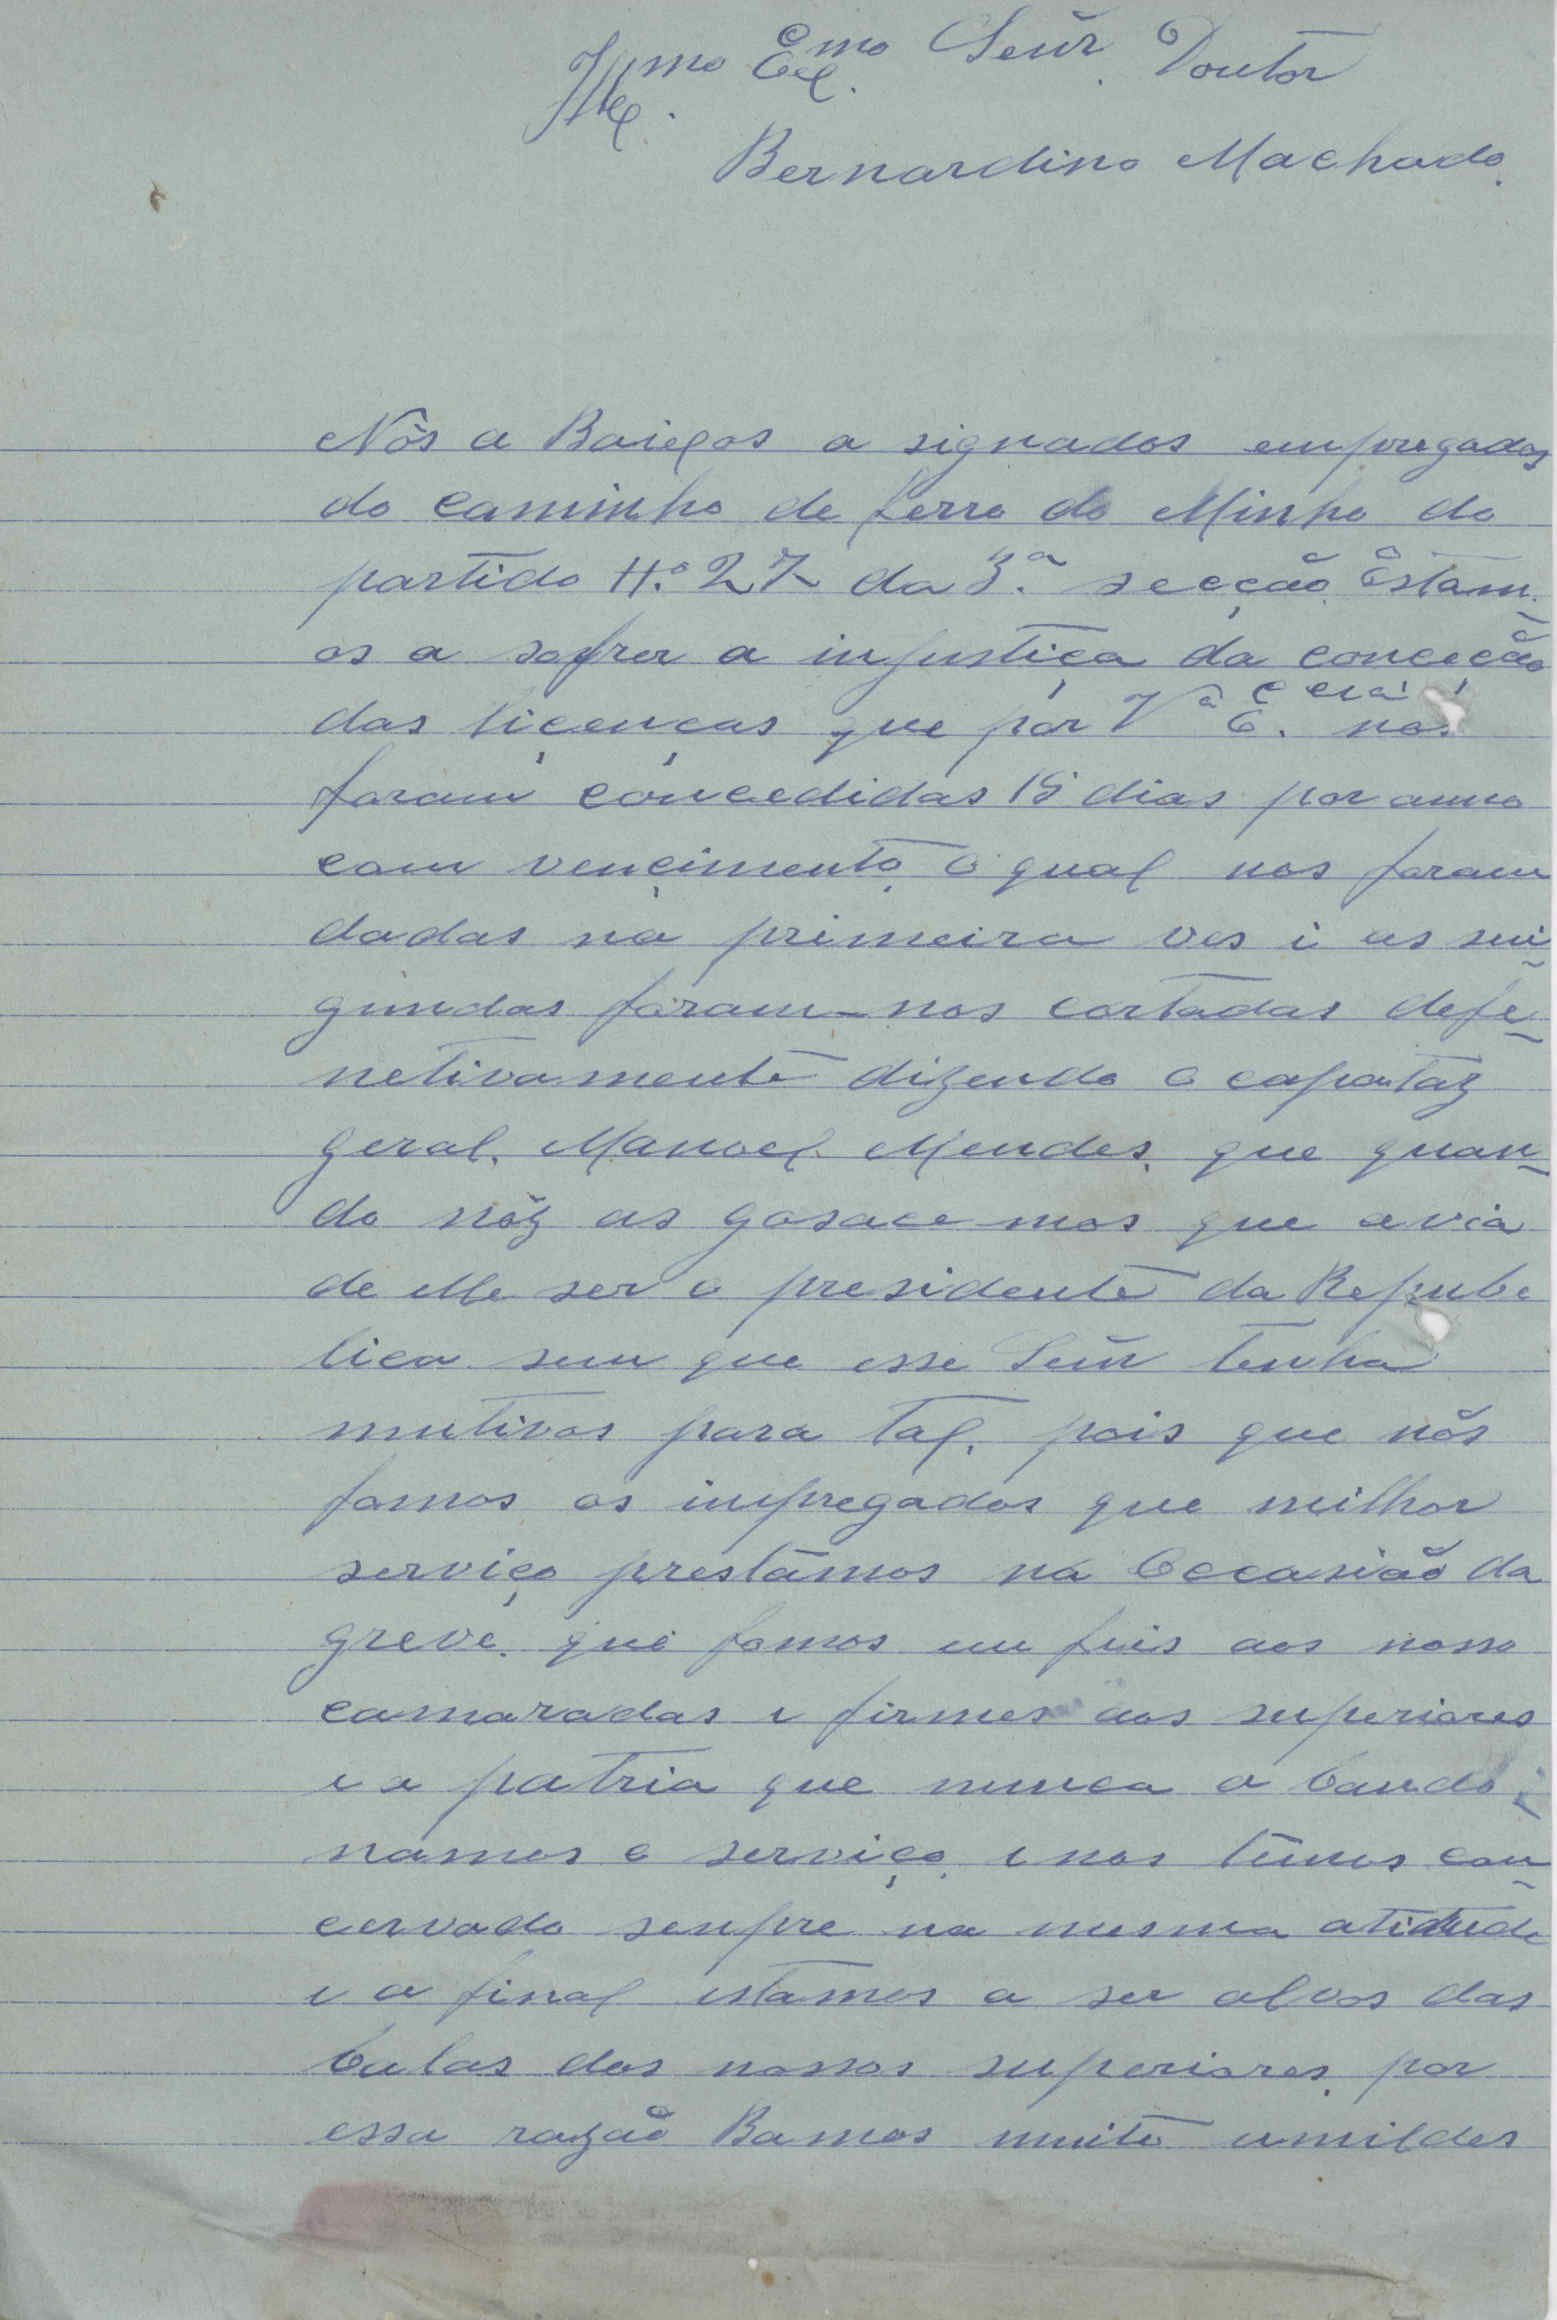 Ill.mo Ex.mo Senr. Doutor
Bernardino Machado.
Nós a Baixos a signados empregados
do caminho de ferro do Minho do
partido N.º 27 da 3.ª secção. Estam-
os a sofrer a injustiça da conceção
das licenças que por V.ª E. cia nos
foram concedidas 15 dias por anno
com vencimento. O qual nos foram
dadas na primeira ves i as sui-
gundas foram-nos cortadas defe-
netivamente dizendo o capataz
geral. Manoel Mendes, que quan-
do nóz as gosace mos que avia
de elle ser o presidente da Repub-
lica sem que esse Senr tenha
mutivos para tal, pois que nós
fomos os impregados que milhor
serviço prestámos na Occasião da
greve. que fomos en fieis aos nosso
camaradas i firmes aos superiores
i a patria que nunca a bando-
namos o serviço. i nos temos con-
cervado senpre na mesma atitude
i a final istamos a ser alvos das
balas dos nossos superiores, por
essa razão Bamos muito umildes